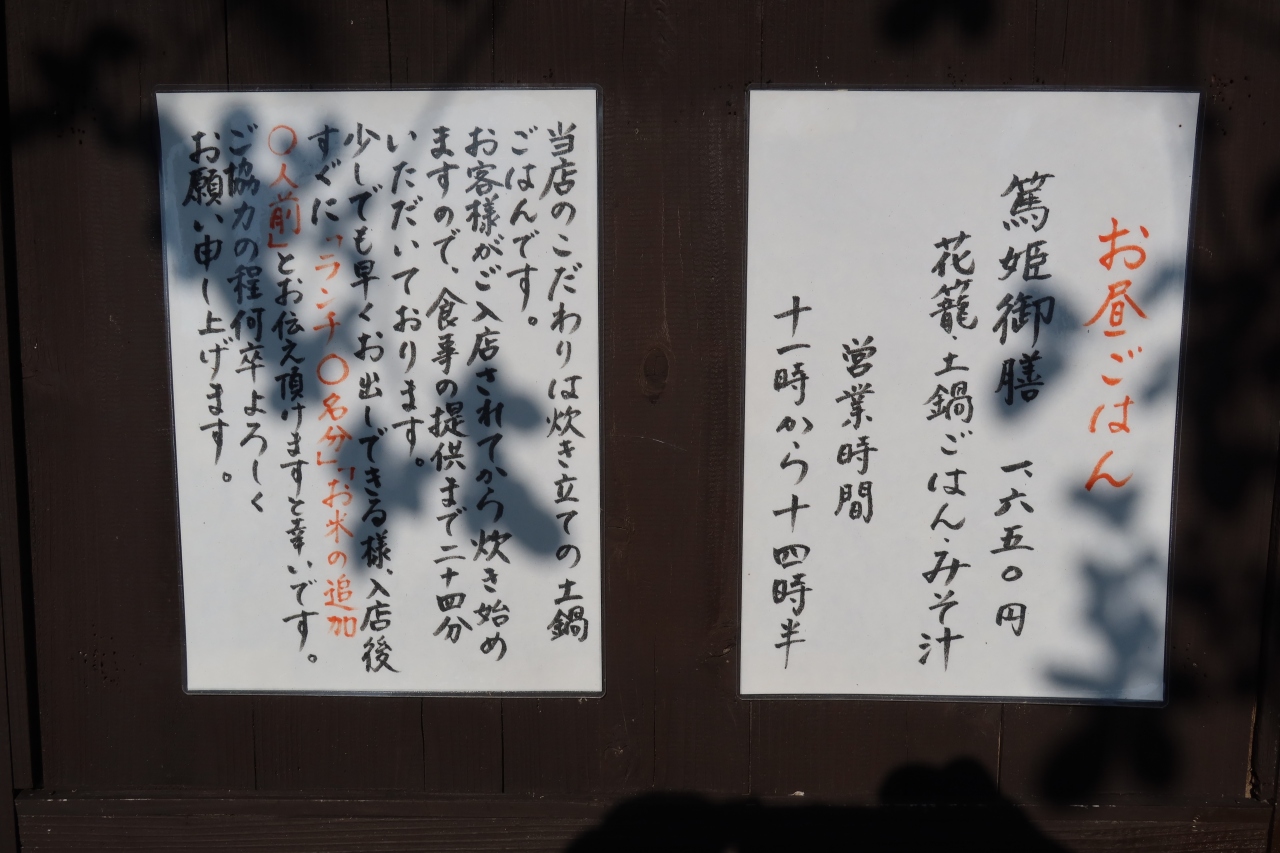 お昼ごはん
篤姫御膳 一、六五〇円
花籠・土鍋ごはん・みそ汁
営業時間
十一時から十四時半
当店のこだわりは炊き立ての土鍋
ごはんです。
お客様がご入店されてから炊き始め
ますので、食事の提供まで二十四分
いただいております。
少しでも早くお出しできる様、入店後
すぐに「ランチ〇名分」「お米の追加
〇人前」とお伝え頂けますと幸いです。
ご協力の程何卒よろしく
お願い申し上げます。